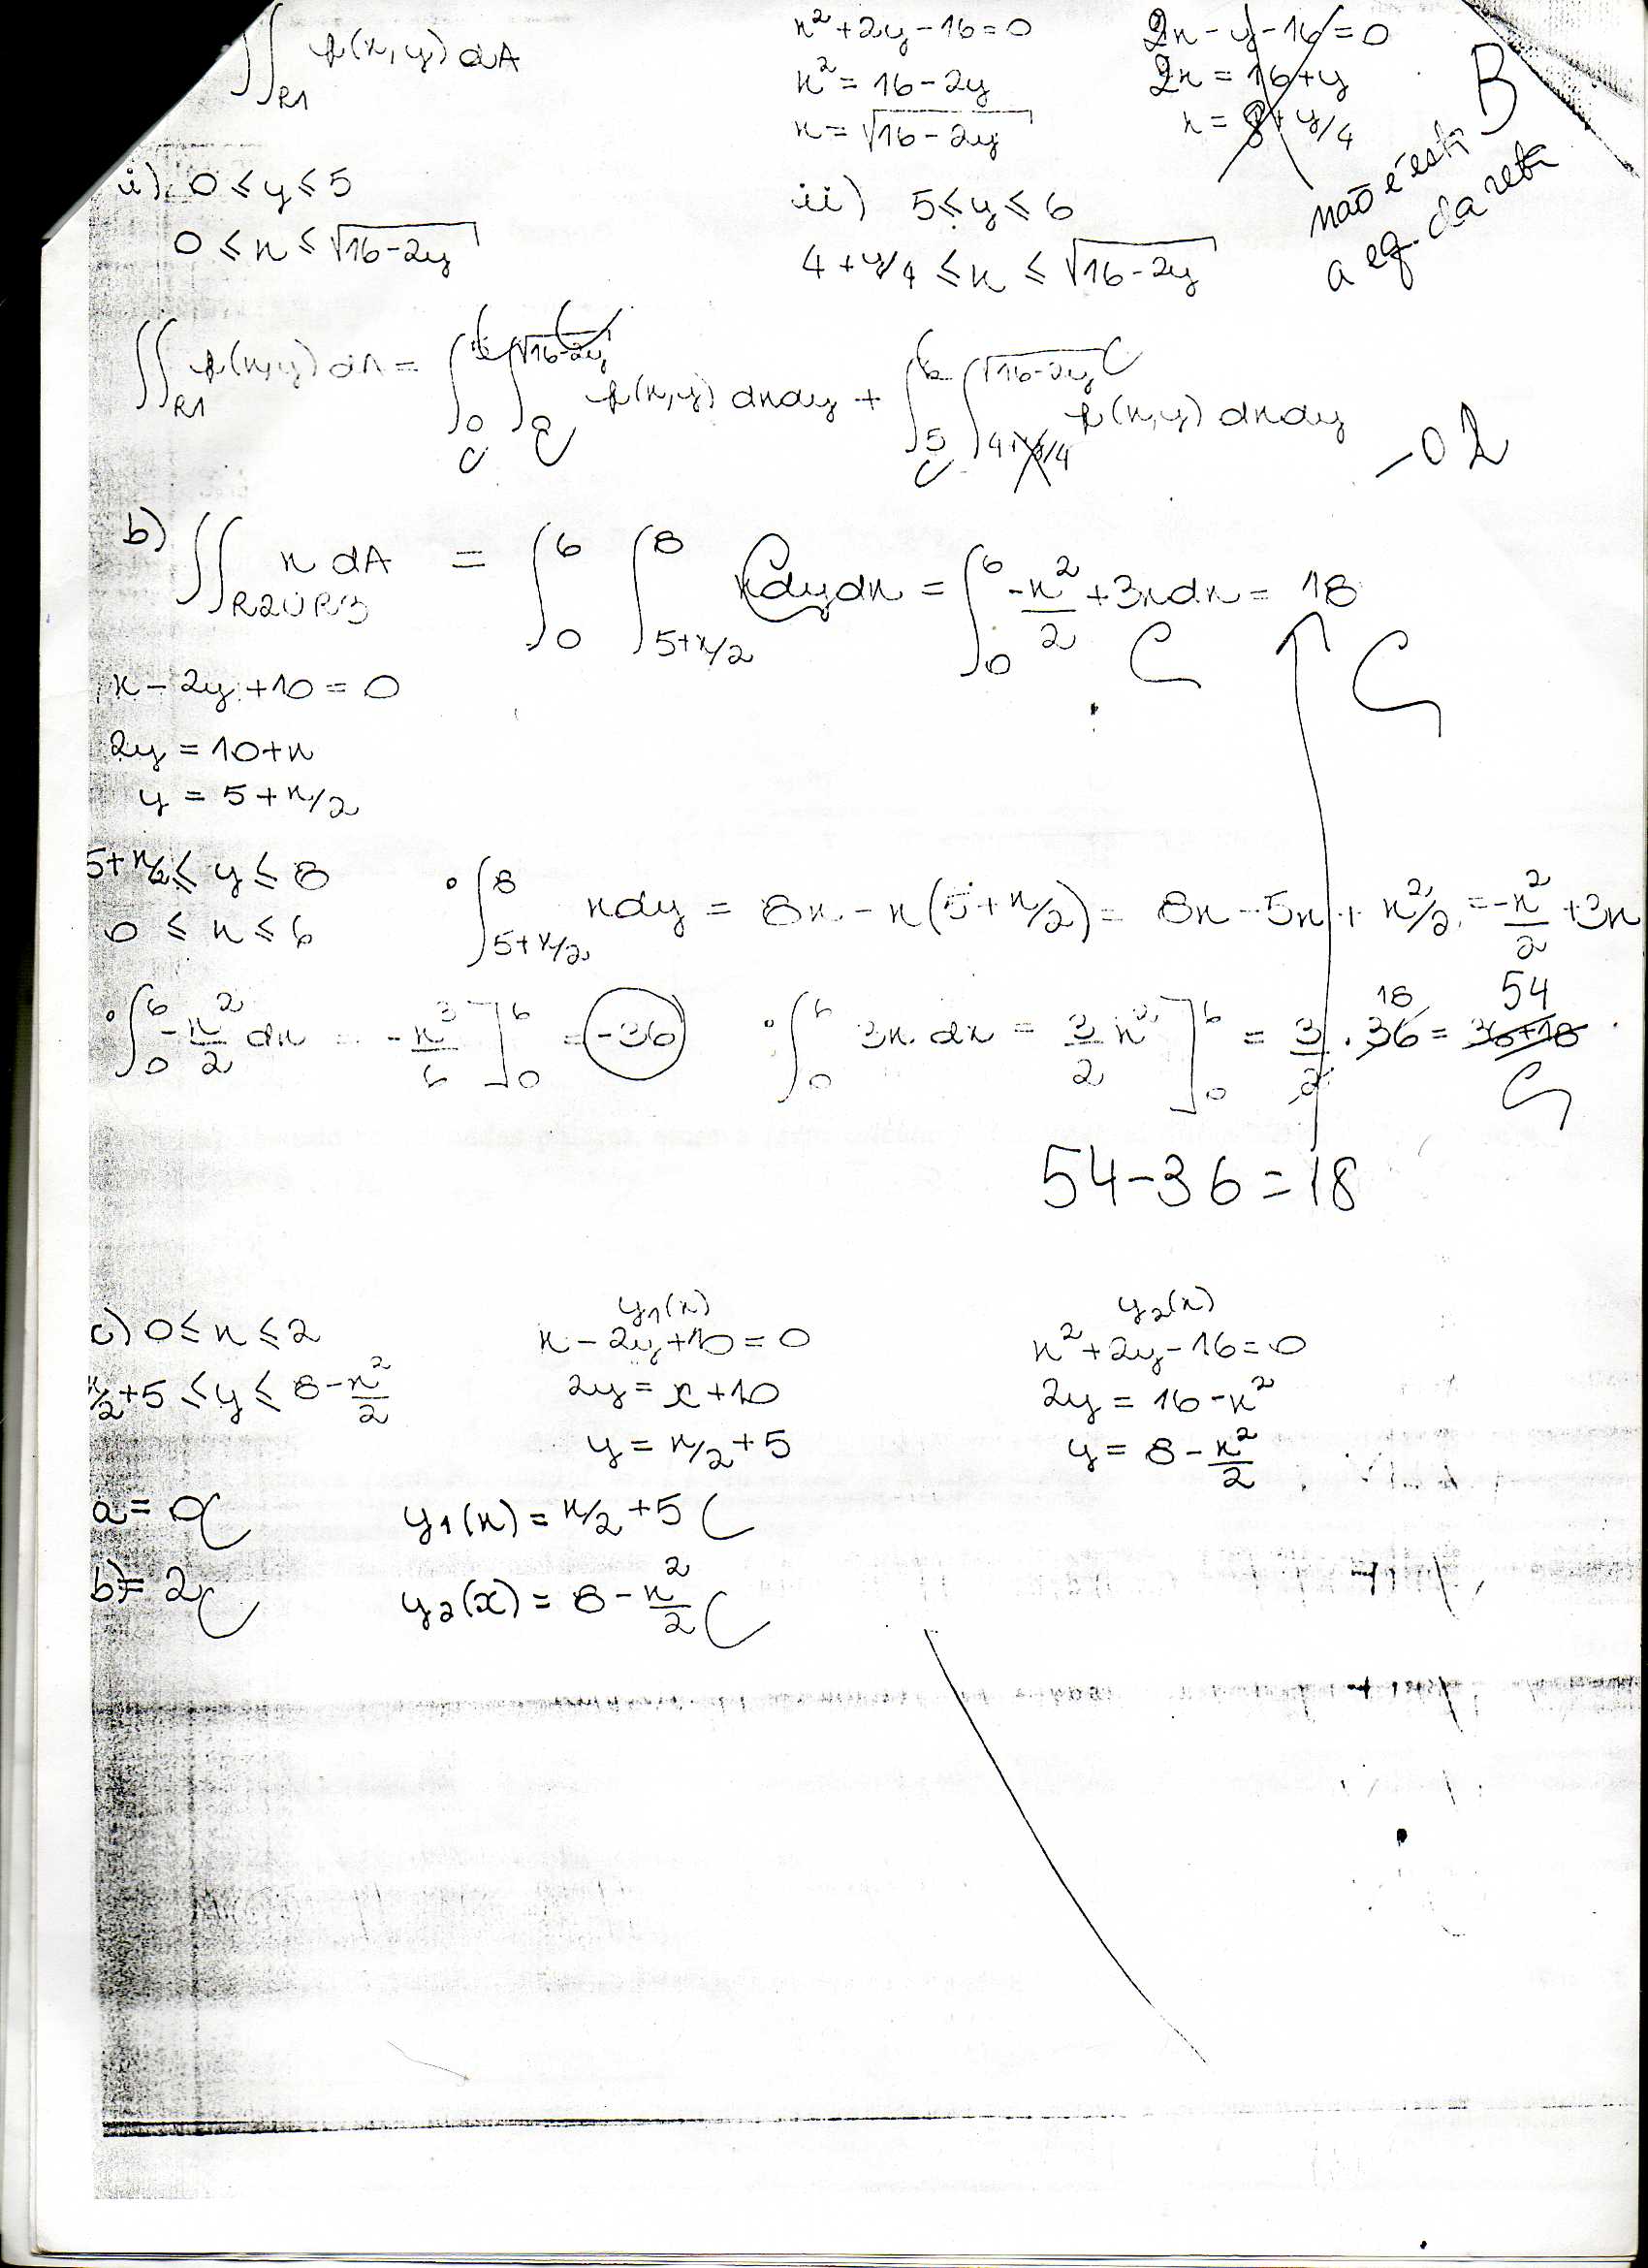 ∬_{R1} f(x,y) dA
x² + 2y - 16 = 0
x² = 16 - 2y
x = √(16 - 2y)
2x - y - 16 = 0
2x = 16 + y
B
não é esta
a eq. da reta
i) 0 ≤ y ≤ 5
0 ≤ x ≤ √(16 - 2y)
ii) 5 ≤ y ≤ 6
4 + y/4 ≤ x ≤ √(16 - 2y)
∬_{R1} f(x,y) dA = ∫_0 ∫_0^{√(16-2y)} f(x,y) dxdy + ∫_5^6 ∫_{4+y/4}^{√(16-2y)} f(x,y) dxdy
b) ∬_{R2∪R3} x dA = ∫_0^6 ∫_{5+x/2}^8 x dy dx = ∫_0^6 -x²/2 + 3x dx = 18 C
C
x - 2y + 10 = 0
2y = 10 + x
y = 5 + x/2
5 + x/2 ≤ y ≤ 8
0 ≤ x ≤ 6
• ∫_{5+x/2}^8 x dy = 8x - x(5 + x/2) = 8x - 5x + x²/2 = -x²/2 + 3x
• ∫_0^6 -x²/2 dx = -x³/6 ]_0^6 = -36
• ∫_0^6 3x dx = 3/2 x² ]_0^6 = 3/2 . 36 = 36+18 54
18
C
54 - 36 = 18
c) 0 ≤ x ≤ 2
x/2 + 5 ≤ y ≤ 8 - x²/2
y1(x)
x - 2y + 10 = 0
2y = x + 10
y = x/2 + 5
y2(x)
x² + 2y - 16 = 0
2y = 16 - x²
y = 8 - x²/2
a = 0 C
y1(x) = x/2 + 5 C
b) = 2 C
y2(x) = 8 - x²/2 C